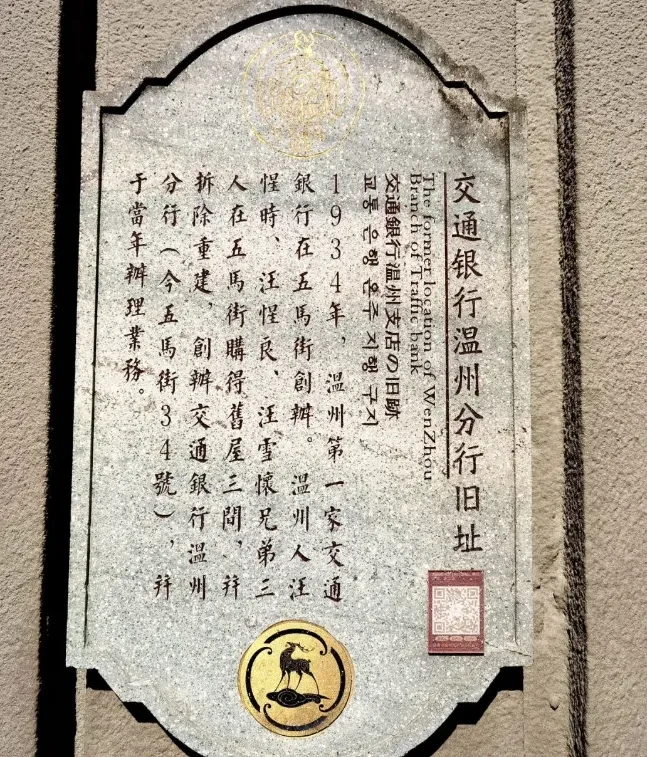 交通银行温州分行旧址
The former location of WenZhou
Branch of Traffic bank
交通銀行温州支店の旧跡
교통 은행 온주 지행 구지
1934年，温州第一家交通
銀行在五馬街創辦。温州人汪
惺時、汪惺良、汪雪懷兄弟三
人在五馬街購得舊屋三間，并
拆除重建，創辦交通銀行温州
分行（今五馬街34號），并
于當年辦理業務。